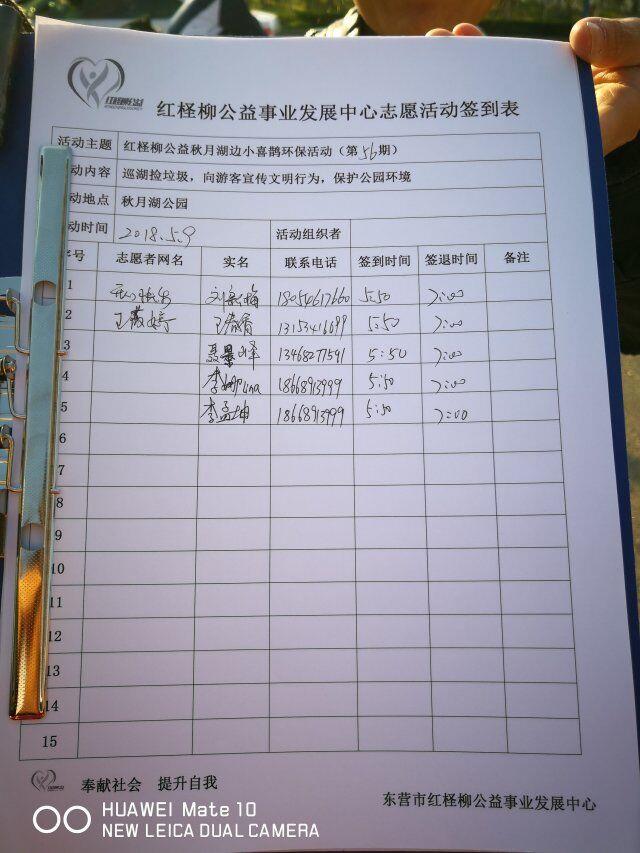 红柽柳公益
红柽柳公益事业发展中心志愿活动签到表
活动主题 红柽柳公益秋月湖边小喜鹊环保活动（第56期）
动内容 巡湖捡垃圾，向游客宣传文明行为，保护公园环境
动地点 秋月湖公园
动时间 2018.5.9 活动组织者
序号 志愿者网名 实名 联系电话 签到时间 签退时间 备注
1 18054617660 5:50 7:00
2 13153416099 5:50 7:00
3 13468277591 5:50 7:00
4 李娜 18668913999 5:50 7:00
5 李孟坤 18668913999 5:50 7:00
6
7
8
9
10
11
12
13
14
15
奉献社会 提升自我
东营市红柽柳公益事业发展中心
HUAWEI Mate 10
NEW LEICA DUAL CAMERA